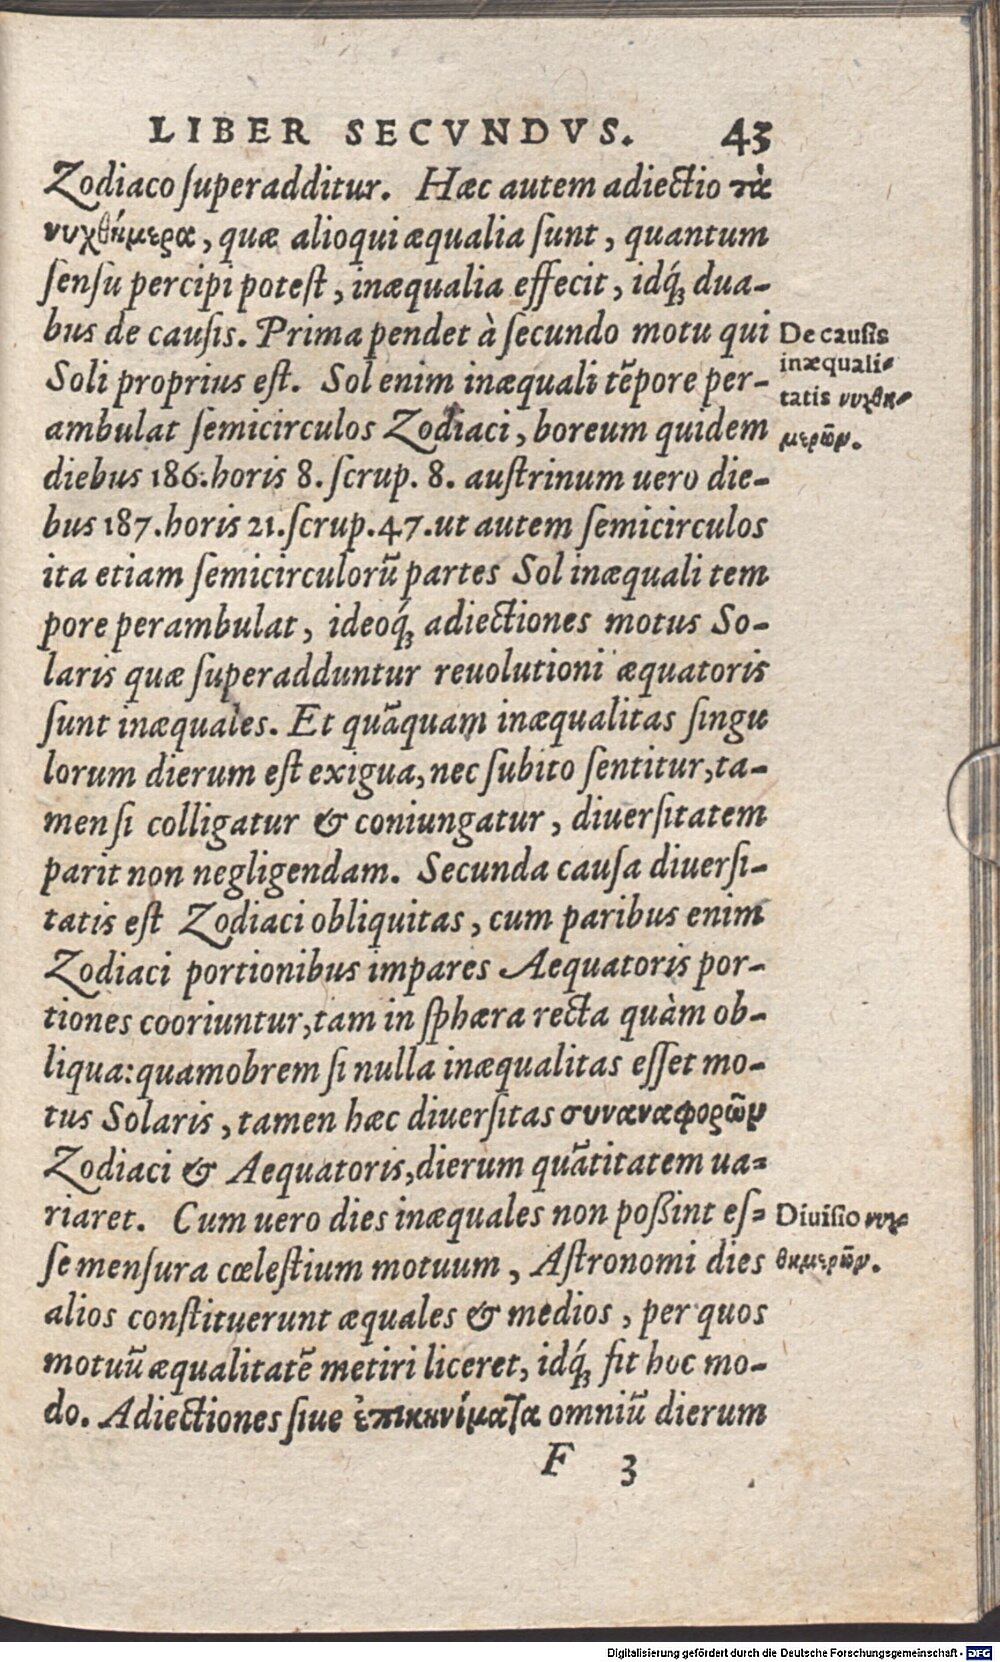 LIBER SECVNDVS. 43
Zodiaco ſuperadditur. Hæc autem adiectio τὰ
νυχθήμερα, quæ alioqui æqualia ſunt, quantum
ſenſu percipi poteſt, inæqualia effecit, idq́ꝫ dua-
bus de cauſis. Prima pendet à ſecundo motu qui
Soli proprius eſt. Sol enim inæquali tẽpore per-
ambulat ſemicirculos Zodiaci, boreum quidem
diebus 186. horis 8. ſcrup. 8. auſtrinum uero die-
bus 187. horis 21. ſcrup. 47. ut autem ſemicirculos
ita etiam ſemicirculorũ partes Sol inæquali tem
pore perambulat, ideoq́ꝫ adiectiones motus So-
laris quæ ſuperadduntur reuolutioni æquatoris
ſunt inæquales. Et quãquam inæqualitas ſingu
lorum dierum eſt exigua, nec ſubito ſentitur, ta-
men ſi colligatur & coniungatur, diuerſitatem
parit non negligendam. Secunda cauſa diuerſi-
tatis eſt Zodiaci obliquitas, cum paribus enim
Zodiaci portionibus impares Aequatoris por-
tiones cooriuntur, tam in ſphæra recta quàm ob-
liqua: quamobrem ſi nulla inæqualitas eſſet mo-
tus Solaris, tamen hæc diuerſitas συναναφορῶν
Zodiaci & Aequatoris, dierum quãtitatem ua-
riaret. Cum uero dies inæquales non poßint eſ-
ſe menſura cœleſtium motuum, Aſtronomi dies
alios conſtituerunt æquales & medios, per quos
motuũ æqualitatẽ metiri liceret, idq́ꝫ fit hoc mo-
do. Adiectiones ſiue ἐπικινήματα omniũ dierum
F 3
De cauſis
inæquali-
tatis νυχθη-
μερῶν.
Diuiſio νυχ-
θημερῶν.
Digitalisierung gefördert durch die Deutsche Forschungsgemeinschaft - DFG